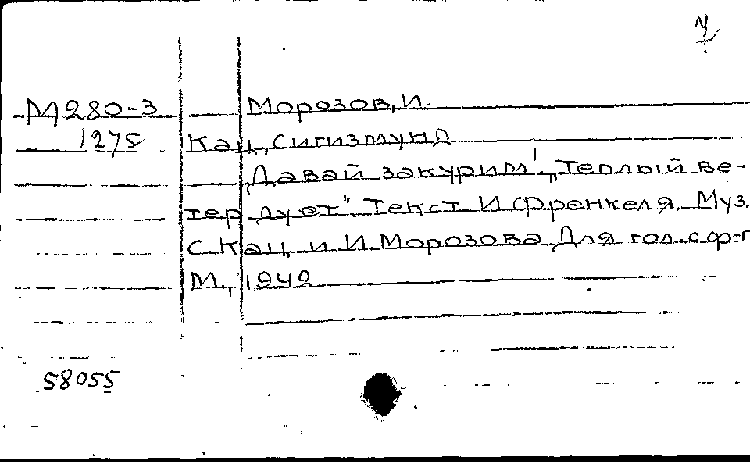 М280-3 Морозов, И.
1275 Кац, Сигизмунд
"Давай закурим", "Теплый ве-
тер дует". Текст И Френкеля. Муз.
С Кац и И Морозова Для гол. с ф-п
М., 1942
58055